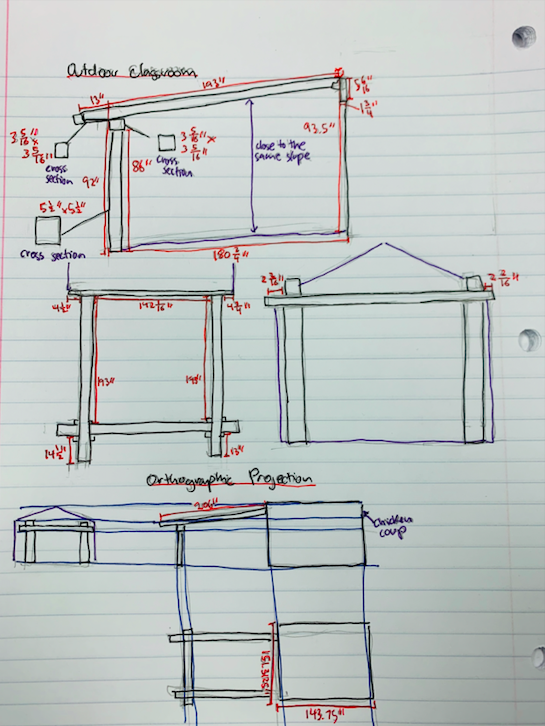 Outdoor Classroom
193"
13"
5 6/16"
1 3/4"
3 5/16" x
3 5/16"
cross
section
3 5/16" x
3 5/16"
cross
section
93.5"
close to the
same slope
92"
86"
5 1/2" x 5 1/2"
cross section
180 3/4"
4 1/2"
142 1/16"
4 3/4"
2 2/16"
193"
14 1/2"
13"
Orthographic Projection
206"
chicken
coup
151.3125"
143.75"